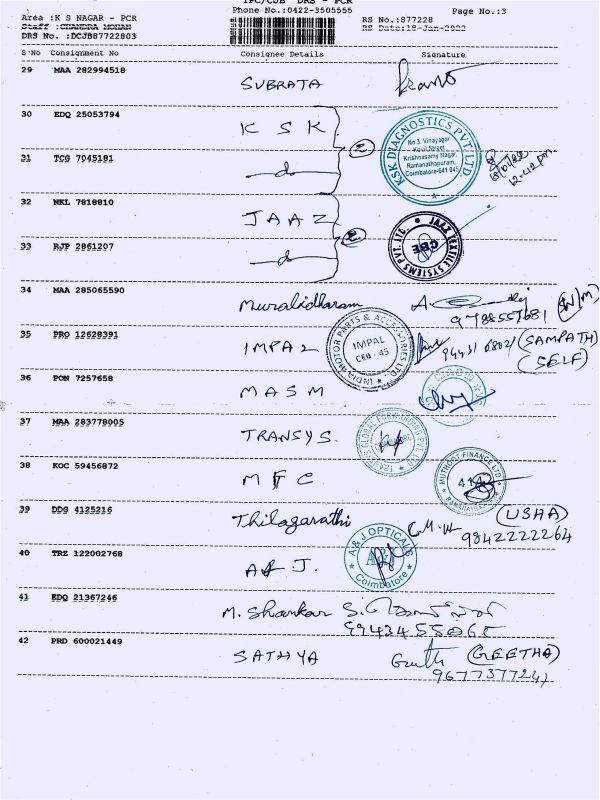 TPC/CJB DRS - PCR
Area :K S NAGAR - PCR
Phone No.:0422-3505555
Page No.:3
Staff :CHANDRA MOHAN
RS No.:877228
DRS No. :DCJB87722803
RS Date:18-Jan-2022
S.No Consignment No Consignee Details Signature
29 MAA 282994518 SUBRATA
30 EDQ 25053794 K S K
KSK DIAGNOSTICS PVT. LTD.
No.3, Vinayagar
Kovil Street
Krishnasamy Nagar,
Ramanathapuram,
Coimbatore-641 045
31 TCG 7045181 —do—
2
12.42 pm
32 NKL 7818810 JAAZ
JAAZ TEXTILE SYSTEMS PVT. LTD.
CBE
33 RJP 2861207 —do—
2
34 MAA 285065590 Muralidharan
(W/M)
35 PRO 12628391 IMPAL
INDIA MOTOR PARTS & ACCESSORIES LTD
IMPAL
CBE - 45
(SAMPATH)
(SELF)
36 PON 7257658 MASM
37 MAA 283778005 TRANSYS.
TRANSYS GLOBAL FORWARDING PVT LTD
38 KOC 59456872 MFC
MUTHOOT FINANCE LTD
39 DDG 4125216 Thilagarathi
(USHA)
9842222264
40 TRZ 122002768 A & J.
A & J OPTICALS
A&J
Coimbatore
41 EDQ 21367246 M. Shankar
9943455065
42 PRD 600021449 SATHYA
Geeth (GEETHA)
9677377241